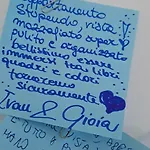 appartamento
stupendo, vista
mozzafiato super
pulito e organizzato
bellissimo essere
immersi tra libri
quadri e colori
torneremo
sicuramente
Ivan & Gioia